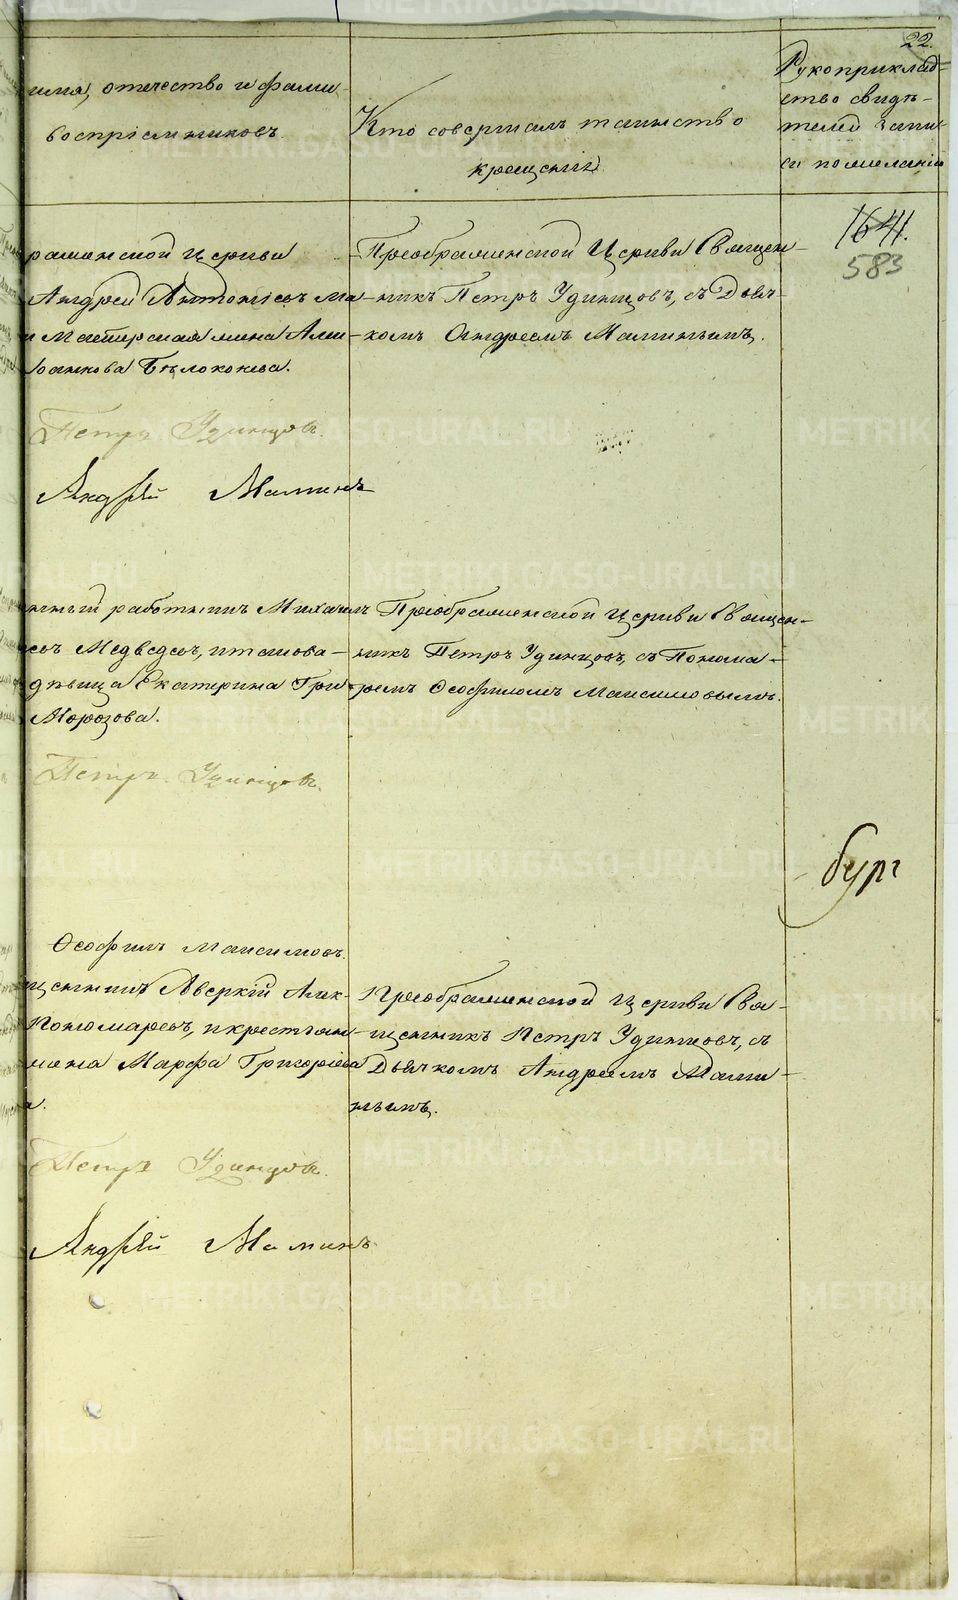 22.
имя, отчество и фами
воспріемниковъ.
Кто совершалъ таинство
крещенія
Рукоприклад-
ство свидѣ-
телей запи-
си по желанію
1641.
583
раженской церкви
Андрей Антоніевъ Ма-
и Мастерская жена
Бѣлоконева.
Преображенской Церкви Священ-
никъ Петръ Удинцовъ, съ Дьяч-
комъ Андреемъ Маминымъ.
Петръ Удинцовъ.
Андрей Маминъ
работникъ Михаилъ
евъ Медведевъ, и такова-
дѣвица Екатерина Гри-
Морозова.
Преображенской Церкви Священ-
никъ Петръ Удинцовъ, съ Понома-
ремъ Ѳеофиломъ Максимовымъ.
Петръ Удинцовъ.
бург
Ѳеофилъ Максимовъ.
щенникъ Аверкій Алек-
Пономаревъ, и крестьян-
жена Марфа Григоріева
а.
Преображенской Церкви Свя-
щенникъ Петръ Удинцовъ, съ
Дьячкомъ Андреемъ Мами-
нымъ.
Петръ Удинцовъ.
Андрей Маминъ
METRIKI.GASO-URAL.RU